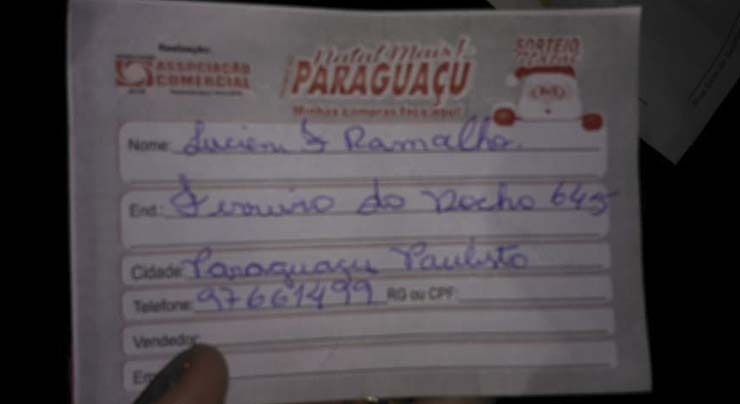 Realização:
ASSOCIAÇÃO
COMERCIAL
Natal Mais!
PARAGUAÇU
Minhas compras faço aqui!
SORTEIO
Nome: Lucieni F Ramalho.
End.: do Rocho 645
Cidade: Paraguaçu Paulista
Telefone: 97661499 RG ou CPF:
Vendedor: